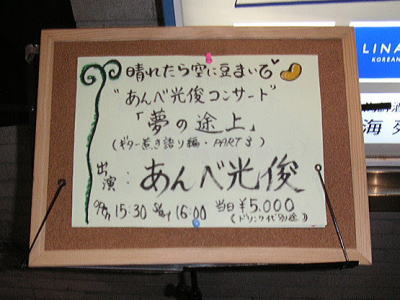 晴れたら空に豆まいて
"あんべ光俊コンサート"
「夢の途上」
(ギター惹き語り編・PART 3)
出演: あんべ光俊
15:30 16:00 当日 ¥5,000
(ドリンク代別途)
LINA
KOREAN
海苑